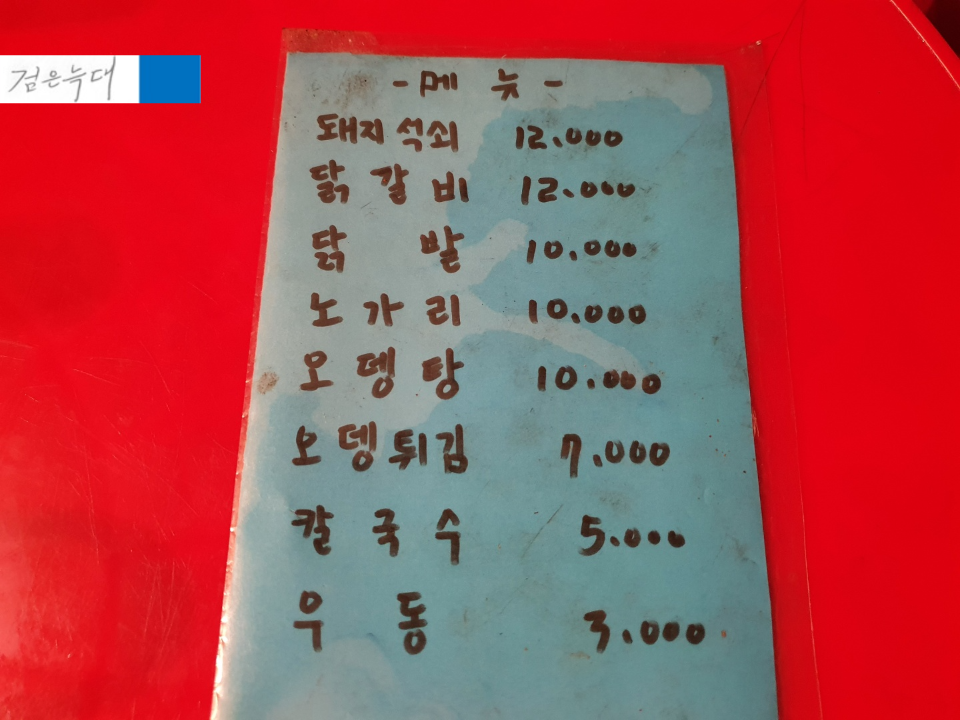 검은늑대
-메뉴-
돼지석쇠 12.000
닭갈비 12.000
닭발 10.000
노가리 10.000
오뎅탕 10.000
오뎅튀김 7.000
칼국수 5.000
우동 3.000